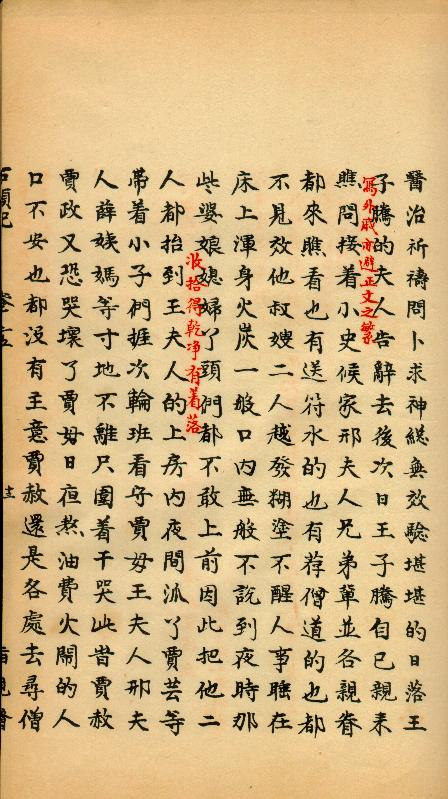 醫治祈禱問卜求神總無效驗堪堪的日落王
子騰的夫人告辭去後次日王子騰自已親来
寫外戚亦避正文之繁
瞧問接着小史候家邢夫人兄弟軰並各親眷
都來瞧看也有送符水的也有荐僧道的也都
不見效他叔嫂二人越發糊塗不醒人事睡在
床上渾身火炭一般口内無般不說到夜時那
些婆娘媳婦丫頭們都不敢上前因此把他二
收拾得乾净有着落
人都抬到王夫人的上房内夜間派丫賈芸等
帶着小子們捱次輪班看守賈母王夫人邢夫
人薛姨媽等寸地不離只圍着干哭此昔賈赦
賈政又恐哭壞了賈母日夜熬油費火閙的人
口不安也都没有主意賈赦還是各處去尋僧
石頭記 卷